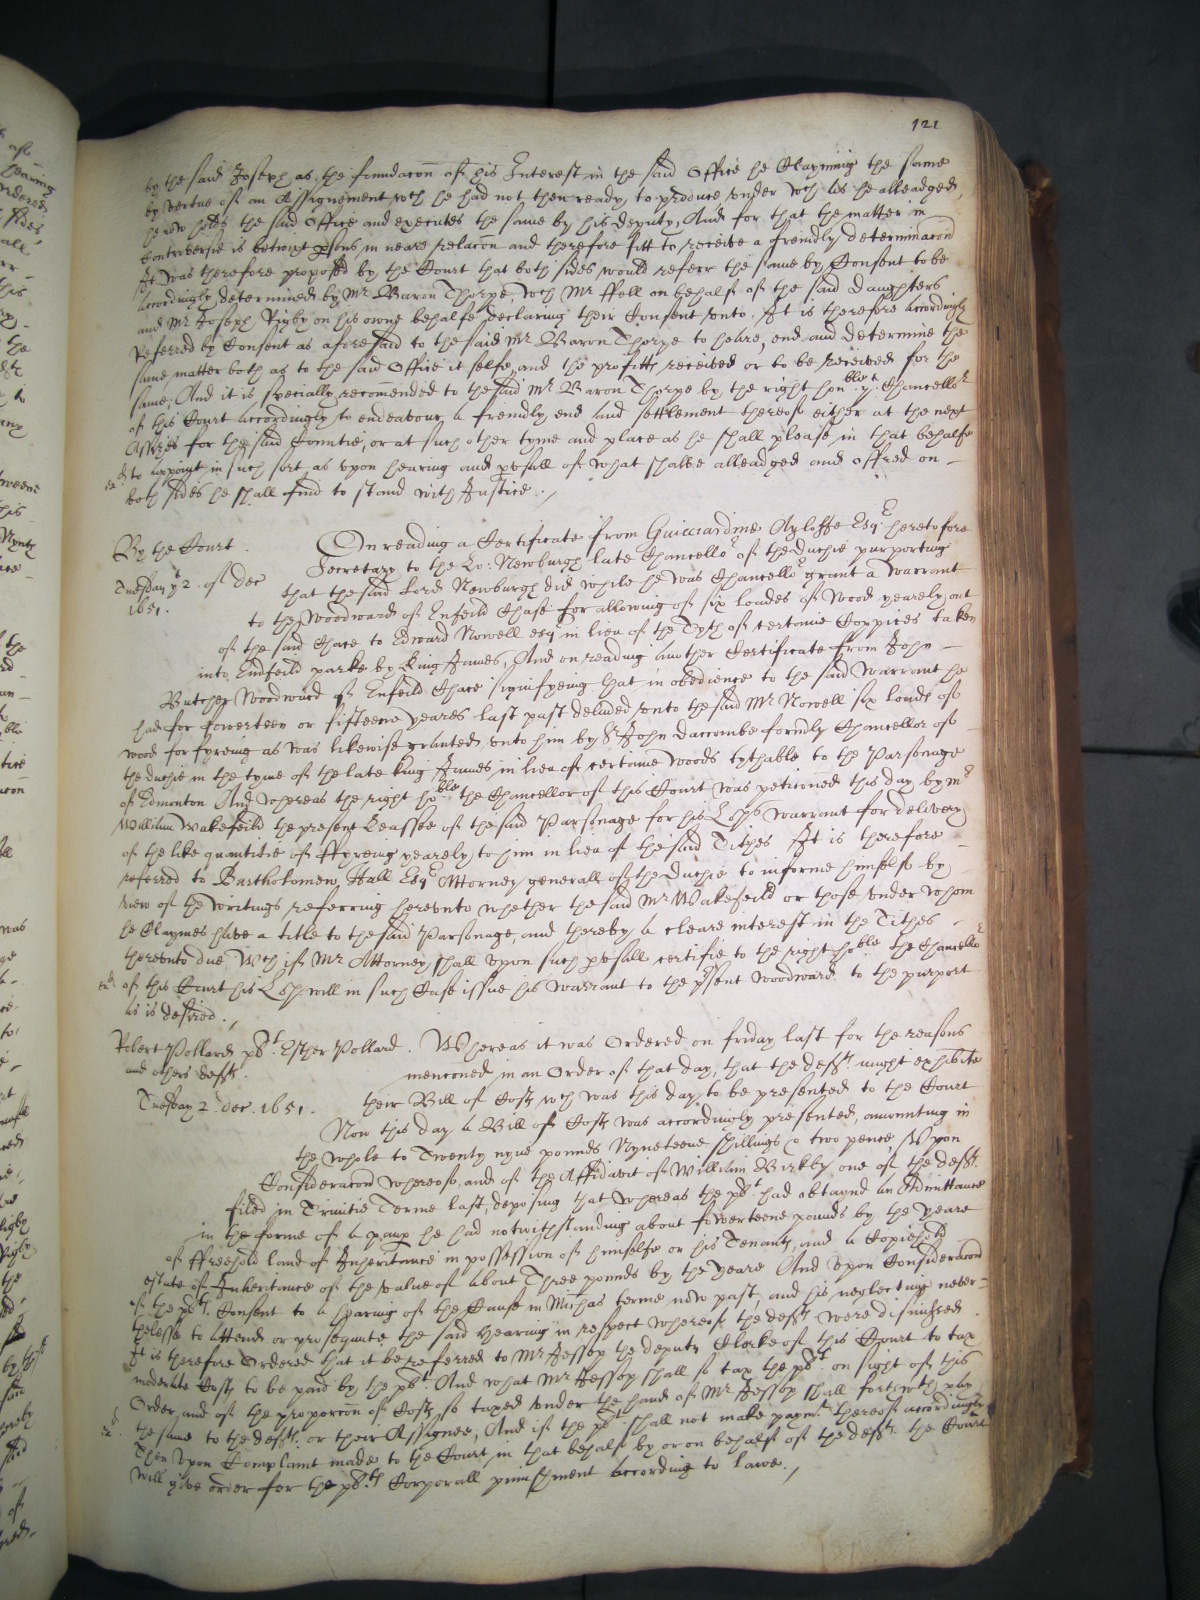 121
by the said Joseph as the foundacon of his Interest in the said Office he Clayming the same
by vertue of an Assignement wch he had not then ready to produce under wch as he alleadged
he now holds the said Office and executes the same by his deputy, And for that the matter in
Controversie is betwixt psons in neare relacon and therefore fitt to receive a freindly determinacon
It was therefore proposed by the Court that both sides would referr the same by Consent to be
accordingly determined by Mr Baron Thorpe, wth Mr ffell on behalf of the said daughters
and Mr Joseph Rigby on his owne behalfe declaring their Consent unto. It is therefore accordingly
Referred by Consent as aforesaid to the said Mr Baron Thorpe to heare, end and determine the
same matter both as to the said Office it selfe, and the profitts received or to be received for the
same, And it is specially recommended to the said Mr Baron Thorpe by the right honble ye Chancellor
of this Court accordingly to endeavour a freindly end and settlement thereof either at the next
Assizes for the said Countie, or at such other tyme and place as he shall please in that behalfe
to appoynt in such sort as upon hearing and pusall of what shalbe alleadged and offred on
both sides he shall find to stand with Justice.
By the Court. On reading a Certificate from Guicciardine Ayloffe Esqr heretofore
Secretary to the Lo: Newburgh late Chancellor of the Duchie purporting
Tuesday ye 2. of Dec that the said Lord Newburgh did while he was Chancellor grant a warrant
1651. to the Woodward of Enfeild Chase for allowing of six loades of Wood yearely out
of the said Chace to Edward Nowell esqr in lieu of the Tyth of certaine Coppices taken
into Endfeild parke by King James, And on reading another Certificate from John
Butcher Woodward of Enfeild Chace signifyeing that in obedience to the said Warrant he
had for fowerteen or fifteene yeares last past delivered unto the said Mr Nowell six loads of
wood for fyreing as was likewise granted unto him by Sr John Daccombe formrly Chancellor of
the duchie in the tyme of the late King James in lieu of certaine woods tythable to the Parsonage
of Edmonton And whereas the right hoble the Chancellor of this Court was peticoned this day by Mr
William Wakefeild the present Leassee of the said Parsonage for his Lops warrant for delivery
of the like quantitie of ffyreing yearely to him in lieu of the said Tithes It is therefore
referred to Bartholomew Hall Esqr Attorney generall of the Duchie to informe himselfe by
view of the writings referring hereunto whether the said Mr Wakefeild or those under whom
he Claymes have a title to the said Parsonage, and thereby a cleare interest in the Tithes
thereunto due Wch if Mr Attorney shall upon such pusall certifie to the right hoble the Chancellor
of this Court his Lop will in such Case issue his Warrant to the psent Woodward to the purport
as is desired.
Robert Pollard plt. Esther Pollard. Whereas it was Ordered on friday last for the reasons
and others defts. mencioned in an Order of that day, that the defts might exhibite
Tuesday 2 Dec. 1651. their Bill of Costs wch was this day to be presented to the Court
Now this day a Bill of Costs was accordingly presented, amounting in
the whole to Twenty nyne pounds Nyneteene shillings & two pence, Upon
Consideracon whereof, and of the Affidavit of William Birkby one of the defts
filed in Trinitie Terme last, deposing that whereas the plt had obtaynd an Admittance
in the forme of a paup he had notwithstanding about fowerteene pounds by the yeare
of ffreehold land of Inheritance in possession of himselfe or his Tenants, and a Copiehold
estate of Inheritance of the value of about Three pounds by the yeare And upon Consideracon
of the plts Consent to a hearing of the Cause in Michas terme now past, and his neglecting never-
thelesse to attend or prosequute the said Hearing in respect whereof the defts were dismissed
It is therefore Ordered that it be referred to Mr Jessop the deputy Clarke of this Court to tax
moderate Costs to be paid by the plt. And what Mr Jessop shall so tax the plt on sight of this
Order and of the proporcon of Costs so taxed under the hand of Mr Jessop shall forthwth pay
the same to the defts or their Assignee, And if the plt shall not make paymt thereof accordingly
Then upon Complaint made to the Court in that behalf by or on behalf of the defts the Court
will give order for the plts Corporall punishment according to lawe.